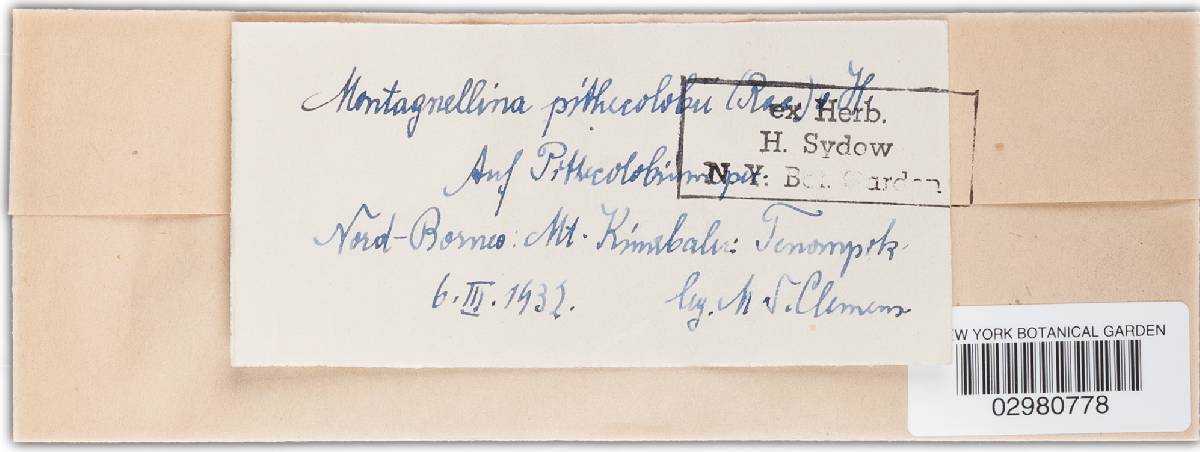 Montagnellina pithecolobii (Rac.) v. H.
Auf Pithecolobium sp.
Nord-Borneo: Mt. Kinabalu: Tenompok
6. III. 1932. leg. M. S. Clemens
ex Herb.
H. Sydow
N. Y. Bot. Garden
NEW YORK BOTANICAL GARDEN
02980778